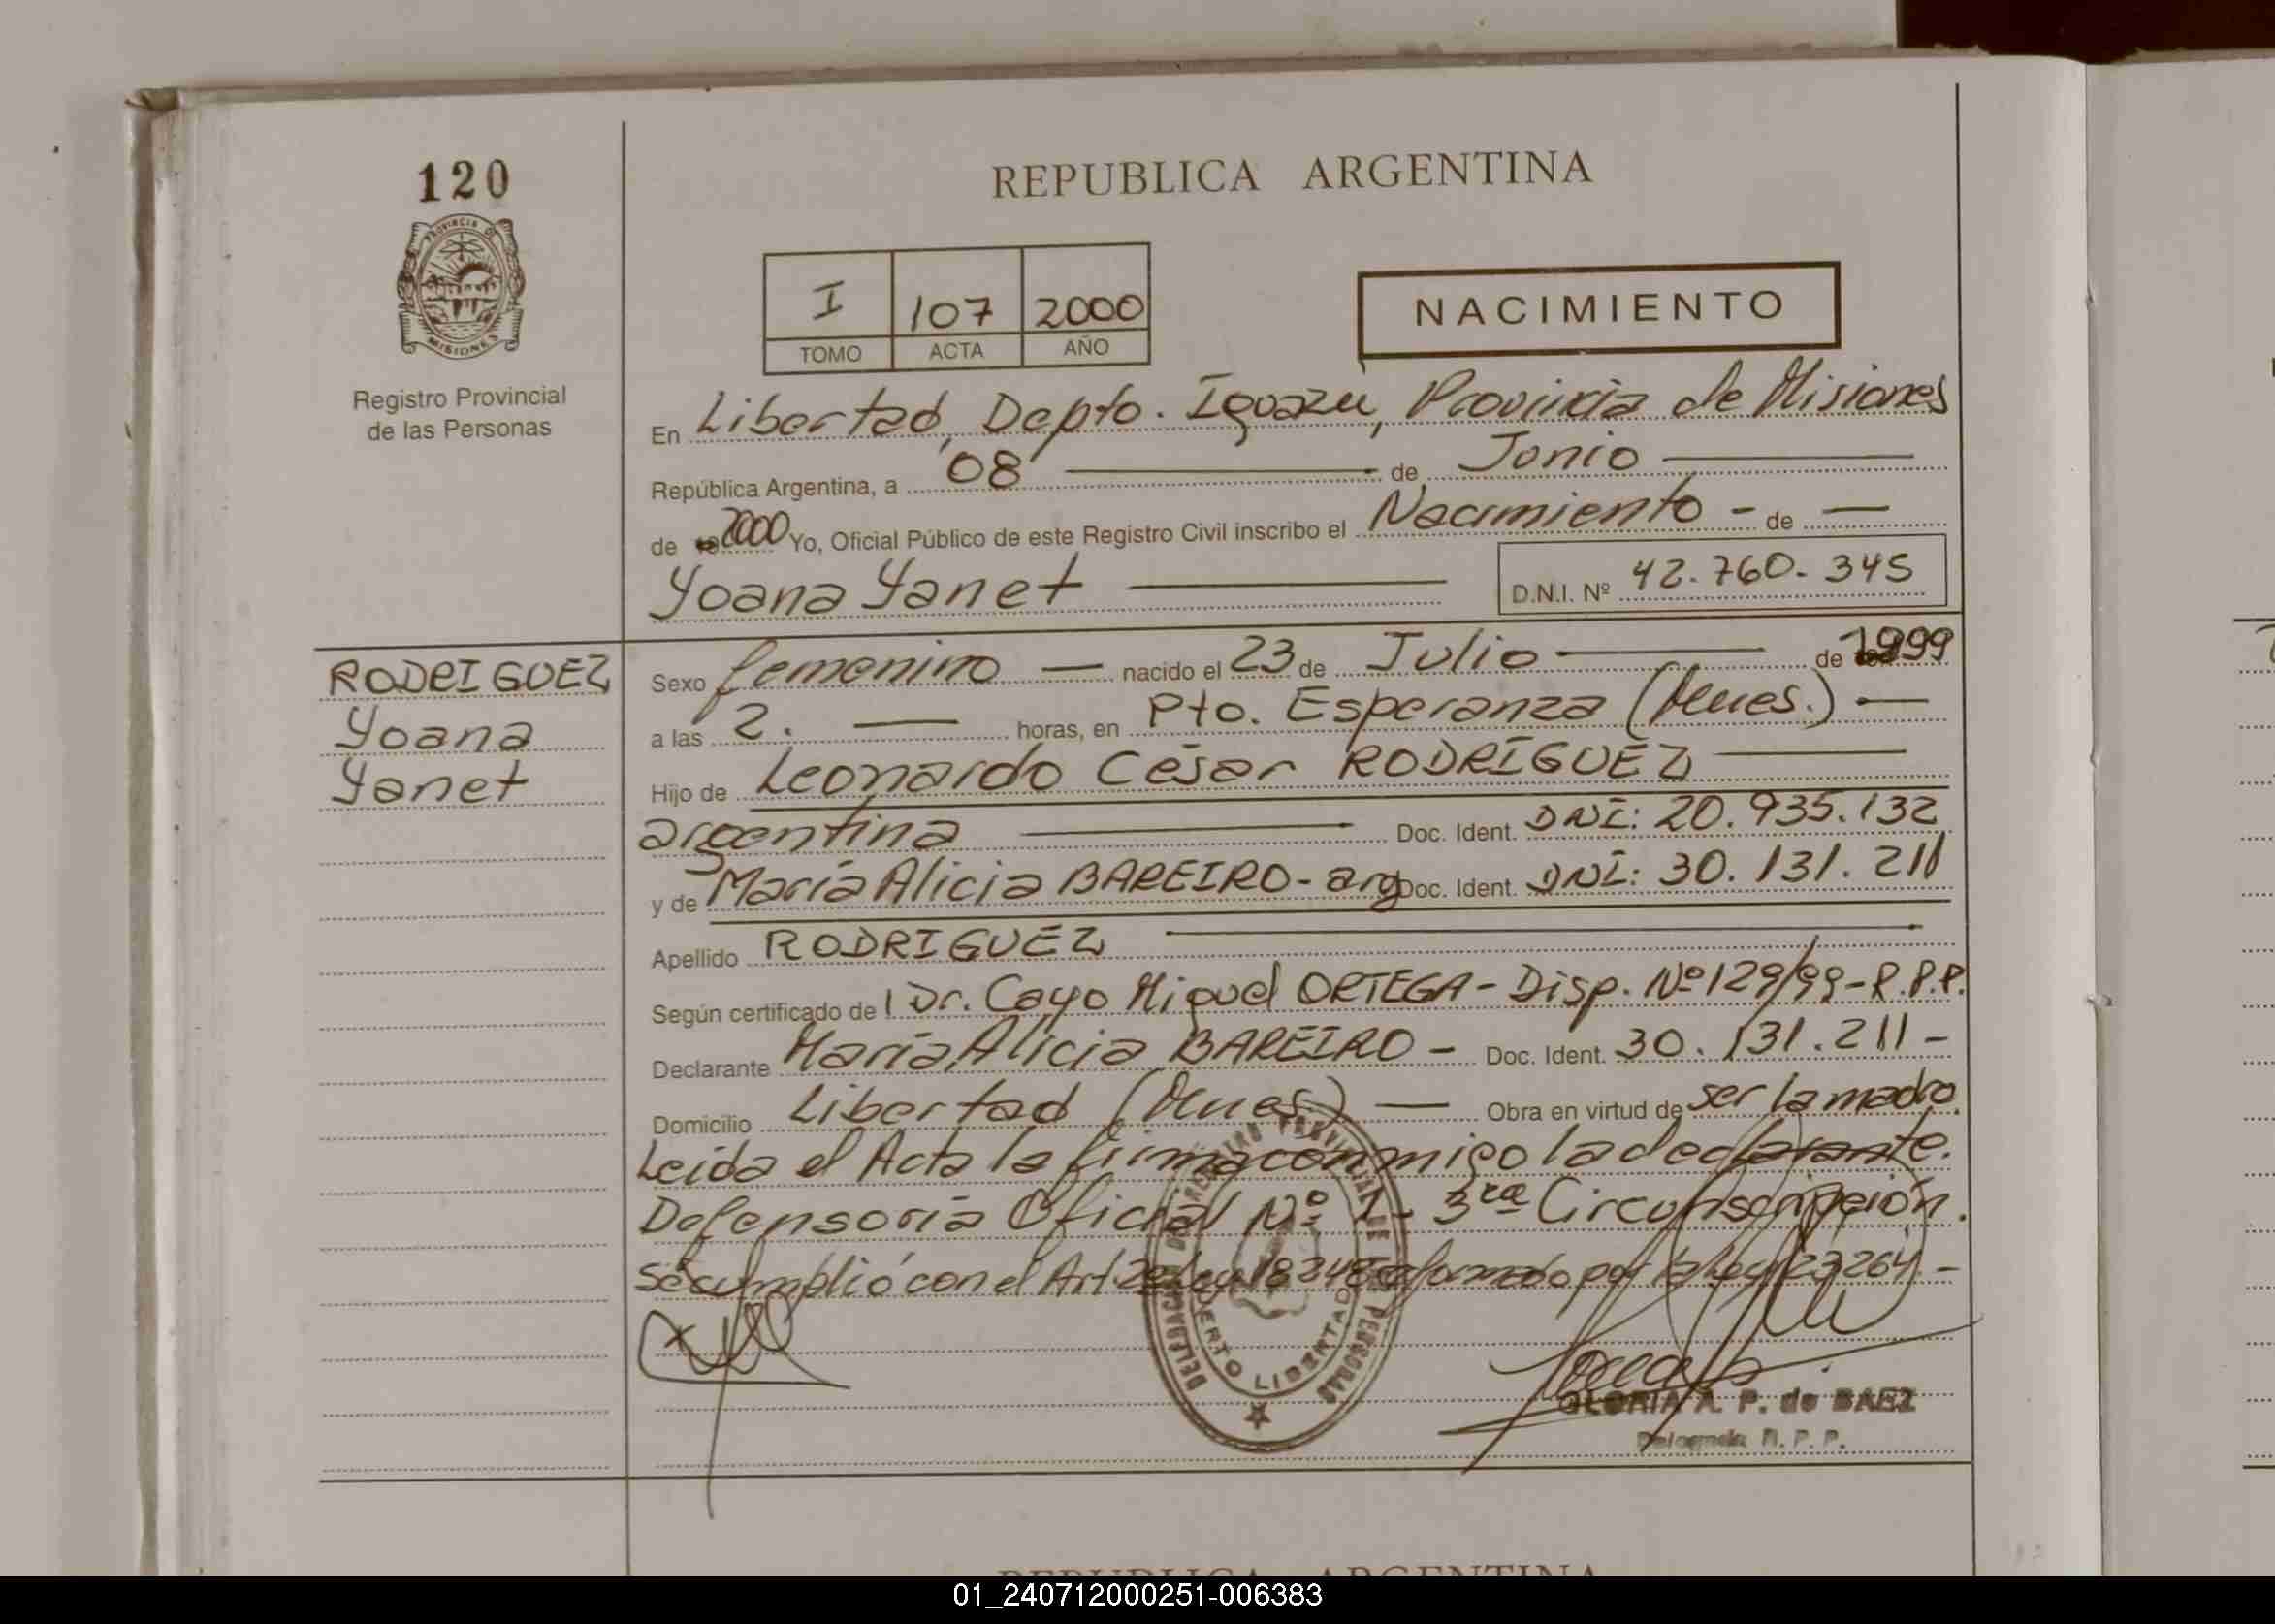 120
PROVINCIA DE
MISIONES
Registro Provincial
de las Personas
REPUBLICA ARGENTINA
I 107 2000
TOMO ACTA AÑO
NACIMIENTO
En Libertad, Depto. Iguazu, Provincia de Misiones
República Argentina, a 08 de Junio
de 2000 Yo, Oficial Público de este Registro Civil inscribo el Nacimiento - de —
Yoana Yanet
D.N.I. Nº 42.760.345
RODRIGUEZ
Yoana
Yanet
Sexo femenino — nacido el 23 de Julio de 1999
a las 2. — horas, en Pto. Esperanza (Mnes.) —
Hijo de Leonardo César RODRÍGUEZ
argentina Doc. Ident. DNI: 20.935.132
y de María Alicia BAREIRO - arg Doc. Ident. DNI: 30.131.211
Apellido RODRIGUEZ
Según certificado de Dr. Cayo Miguel ORTEGA - Disp. Nº 129/99 - R.P.P.
Declarante María Alicia BAREIRO - Doc. Ident. 30.131.211 -
Domicilio Libertad (Mnes.) — Obra en virtud de ser la madre.
Leída el Acta la firma conmigo la declarante.
Defensoría Oficial Nº 1 - 3ra Circunscripción.
Se cumplió con el Art. 2º Ley 18248 reformado por la Ley 23264 -
DELEGACION DEL REGISTRO PROVINCIAL DE LAS PERSONAS
PUERTO LIBERTAD
GLORIA A. P. de BAEZ
Delegada R. P. P.
REPUBLICA ARGENTINA
01_240712000251-006383